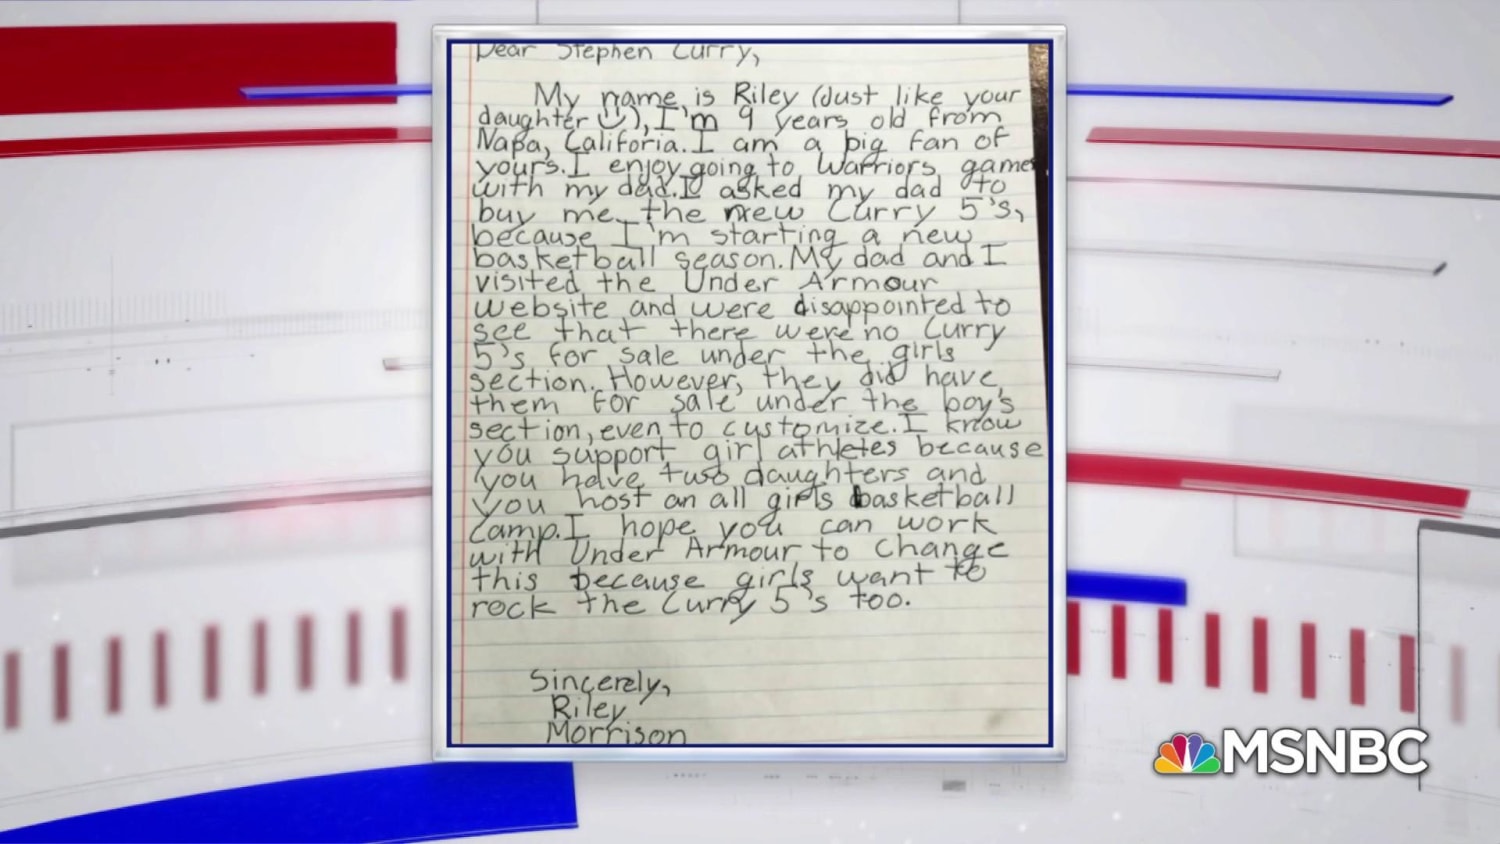 Dear Stephen Curry,
My name is Riley (Just like your
daughter ☺), I'm 9 years old from
Napa, Califoria. I am a big fan of
yours. I enjoy going to Warriors games
with my dad. I asked my dad to
buy me the new Curry 5's,
because I'm starting a new
basketball season. My dad and I
visited the Under Armour
website and were disappointed to
see that there were no Curry
5's for sale under the girls
section. However, they did have
them for sale under the boy's
section, even to customize. I know
you support girl athletes because
you have two daughters and
you host an all girls basketball
camp. I hope you can work
with Under Armour to change
this because girls want to
rock the Curry 5's too.
Sincerely,
Riley
Morrison
MSNBC